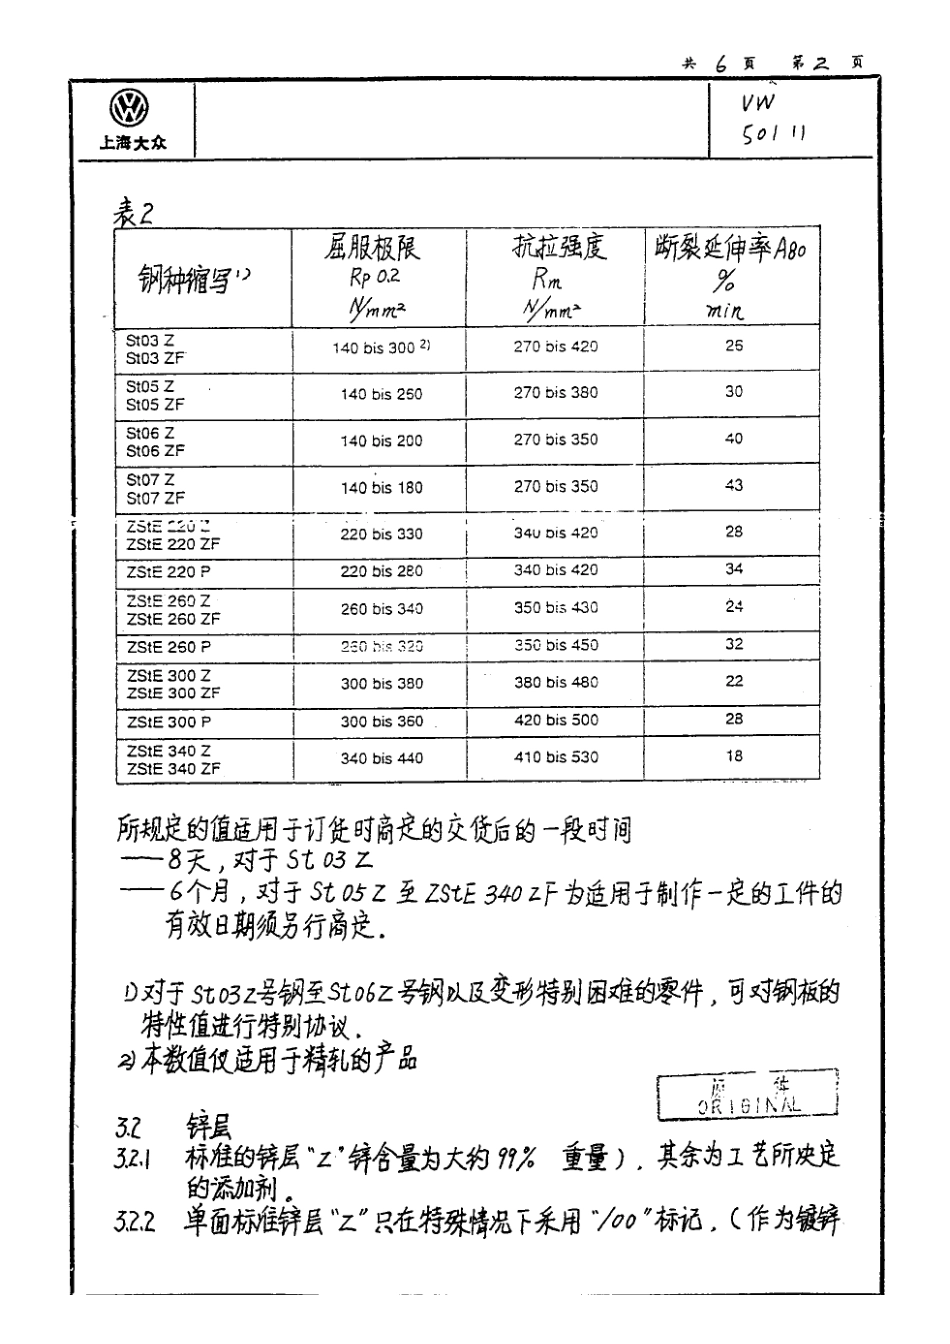 共 6 页 第 2 页
上海大众
VW
50111
表2
钢种缩写1)
屈服极限
Rp 0.2
N/mm²
抗拉强度
Rm
N/mm²
断裂延伸率A80
%
min
St03 Z
St03 ZF
140 bis 300 2)
270 bis 420
26
St05 Z
St05 ZF
140 bis 260
270 bis 380
30
St06 Z
St06 ZF
140 bis 200
270 bis 350
40
St07 Z
St07 ZF
140 bis 180
270 bis 350
43
ZStE 220 Z
ZStE 220 ZF
220 bis 330
340 bis 420
28
ZStE 220 P
220 bis 280
340 bis 420
34
ZStE 260 Z
ZStE 260 ZF
260 bis 340
350 bis 430
24
ZStE 260 P
260 bis 320
350 bis 450
32
ZStE 300 Z
ZStE 300 ZF
300 bis 380
380 bis 480
22
ZStE 300 P
300 bis 360
420 bis 500
28
ZStE 340 Z
ZStE 340 ZF
340 bis 440
410 bis 530
18
所规定的值适用于订货时商定的交货后的一段时间
——8天,对于St 03 Z
——6个月,对于St 05 Z 至 ZStE 340 ZF为适用于制作一定的工件的
有效日期须另行商定.
1)对于St03Z号钢至St06Z号钢以及变形特别困难的零件,可对钢板的
特性值进行特别协议.
2)本数值仅适用于精轧的产品
ORIGINAL
3.2 锌层
3.2.1 标准的锌层"Z"锌含量为大约99% 重量),其余为工艺所决定
的添加剂。
3.2.2 单面标准锌层"Z"只在特殊情况下采用"/00"标记,(作为镀锌